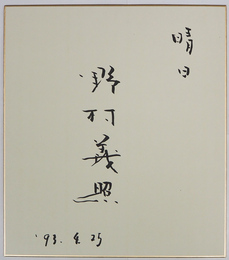 晴日
野村義照
'93.4.25